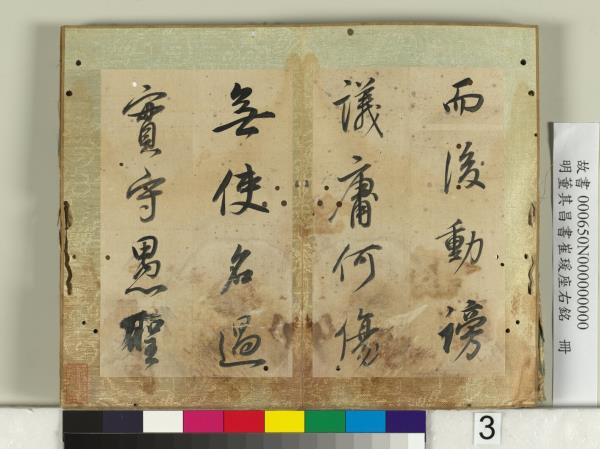 而後動謗
議庸何傷
無使名過
實守愚聖
故書 000650N000000000
明董其昌書崔瑗座右銘 冊
3